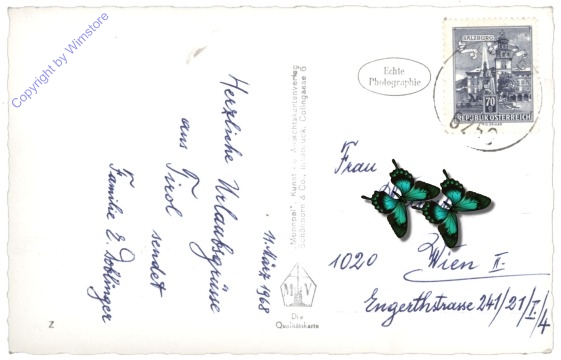 Copyright by Wimstore
Herzliche Urlaubsgrüsse
aus Tirol sendet
Familie E. Doblinger
11. März 1968
"Monopol", Kunst- u. Ansichtskartenverlag
Schöllhorn & Co., Innsbruck, Collingasse 6
M V
Die
Qualitätskarte
Z
Echte
Photographie
SALZBURG
70
REPUBLIK ÖSTERREICH
6450
Frau
1020 Wien II.
Engerthstrasse 241/21/I/4